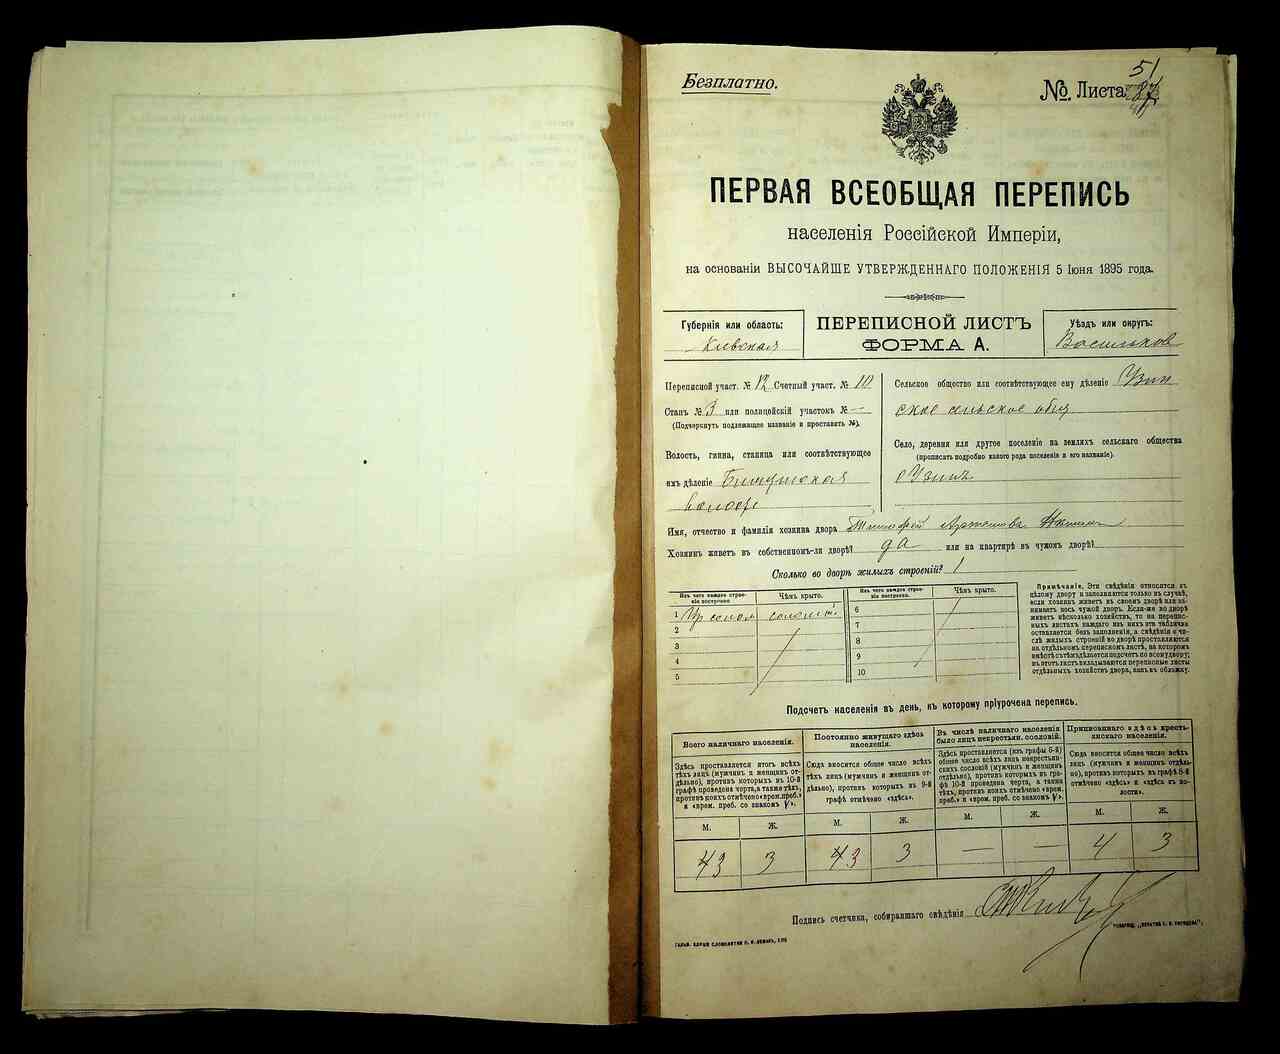 Безплатно.
51
№. Листа 87
ПЕРВАЯ ВСЕОБЩАЯ ПЕРЕПИСЬ
населенія Россійской Имперіи,
на основаніи ВЫСОЧАЙШЕ УТВЕРЖДЕННАГО ПОЛОЖЕНІЯ 5 Іюня 1895 года.
Губернія или область:
Кіевская
ПЕРЕПИСНОЙ ЛИСТЪ
ФОРМА А.
Уѣздъ или округъ:
Васильков
Переписной участ. № 12 Счетный участ. № 10
Станъ № 3 или полицейскій участокъ № —
(Подчеркнуть подлежащее названіе и проставить №).
Волость, гмина, станица или соотвѣтствующее
имъ дѣленіе
Сельское общество или соотвѣтствующее ему дѣленіе Узин
ское сельское общ
Село, деревня или другое поселеніе на земляхъ сельскаго общества
(прописать подробно какого рода поселеніе и его названіе).
с Узинъ
Имя, отчество и фамилія хозяина двора Тимофей
Хозяинъ живетъ въ собственномъ-ли дворѣ? да или на квартирѣ въ чужомъ дворѣ?
Сколько во дворѣ жилыхъ строеній? 1
Изъ чего каждое строе-
ніе построено.
Чѣмъ крыто.
Изъ чего каждое строе-
ніе построено.
Чѣмъ крыто.
1
2
3
4
5
6
7
8
9
10
Примѣчаніе. Эти свѣдѣнія относятся къ
цѣлому двору и заполняются только въ случаѣ,
если хозяинъ живетъ въ своемъ дворѣ или за-
нимаетъ весь чужой дворъ. Если-же во дворѣ
живетъ нѣсколько хозяйствъ, то на перепис-
ныхъ листахъ каждаго изъ нихъ эта табличка
оставляется безъ заполненія, а свѣдѣнія о чи-
слѣ жилыхъ строеній во дворѣ проставляются
на отдѣльномъ переписномъ листѣ, на которомъ
вмѣстѣ съ тѣмъ дѣлается подсчетъ по всему двору;
въ этотъ листъ вкладываются переписные листы
отдѣльныхъ хозяйствъ двора, какъ въ обложку.
Подсчетъ населенія въ день, къ которому пріурочена перепись.
Всего наличнаго населенія.
Здѣсь проставляется итогъ всѣхъ
тѣхъ лицъ (мужчинъ и женщинъ от-
дѣльно), противъ которыхъ въ 10-й
графѣ проведена черта, а также тѣхъ,
противъ коихъ отмѣчено «врем. преб.»
и «врем. преб. со знакомъ V».
М. Ж.
43 3
Постоянно живущаго здѣсь
населенія.
Сюда вносится общее число всѣхъ
тѣхъ лицъ (мужчинъ и женщинъ от-
дѣльно), противъ которыхъ въ 9-й
графѣ отмѣчено «здѣсь».
М. Ж.
43 3
Въ числѣ наличнаго населенія
было лицъ некрестьян. сословій.
Здѣсь проставляется (изъ графы 6-й)
общее число всѣхъ лицъ некрестьян-
скихъ сословій (мужчинъ и женщинъ
отдѣльно), противъ которыхъ въ гра-
фѣ 10-й проведена черта, а также
тѣхъ, противъ коихъ отмѣчено «врем.
преб.» и «врем. преб. со знакомъ V».
М. Ж.
— —
Приписаннаго здѣсь кресть-
янскаго населенія.
Сюда вносится общее число всѣхъ
лицъ (мужчинъ и женщинъ отдѣль-
но), противъ которыхъ въ графѣ 8-й
отмѣчено «здѣсь» и «здѣсь въ во-
лости».
М. Ж.
4 3
Подпись счетчика, собиравшаго свѣдѣнія